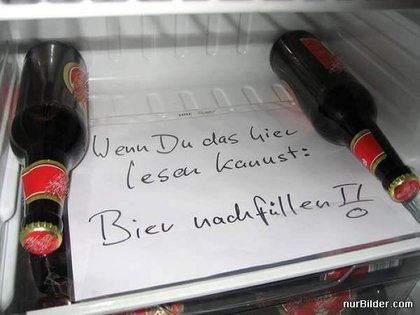 Wenn Du das hier
lesen kannst:
Bier nachfüllen !!
nurBilder.com